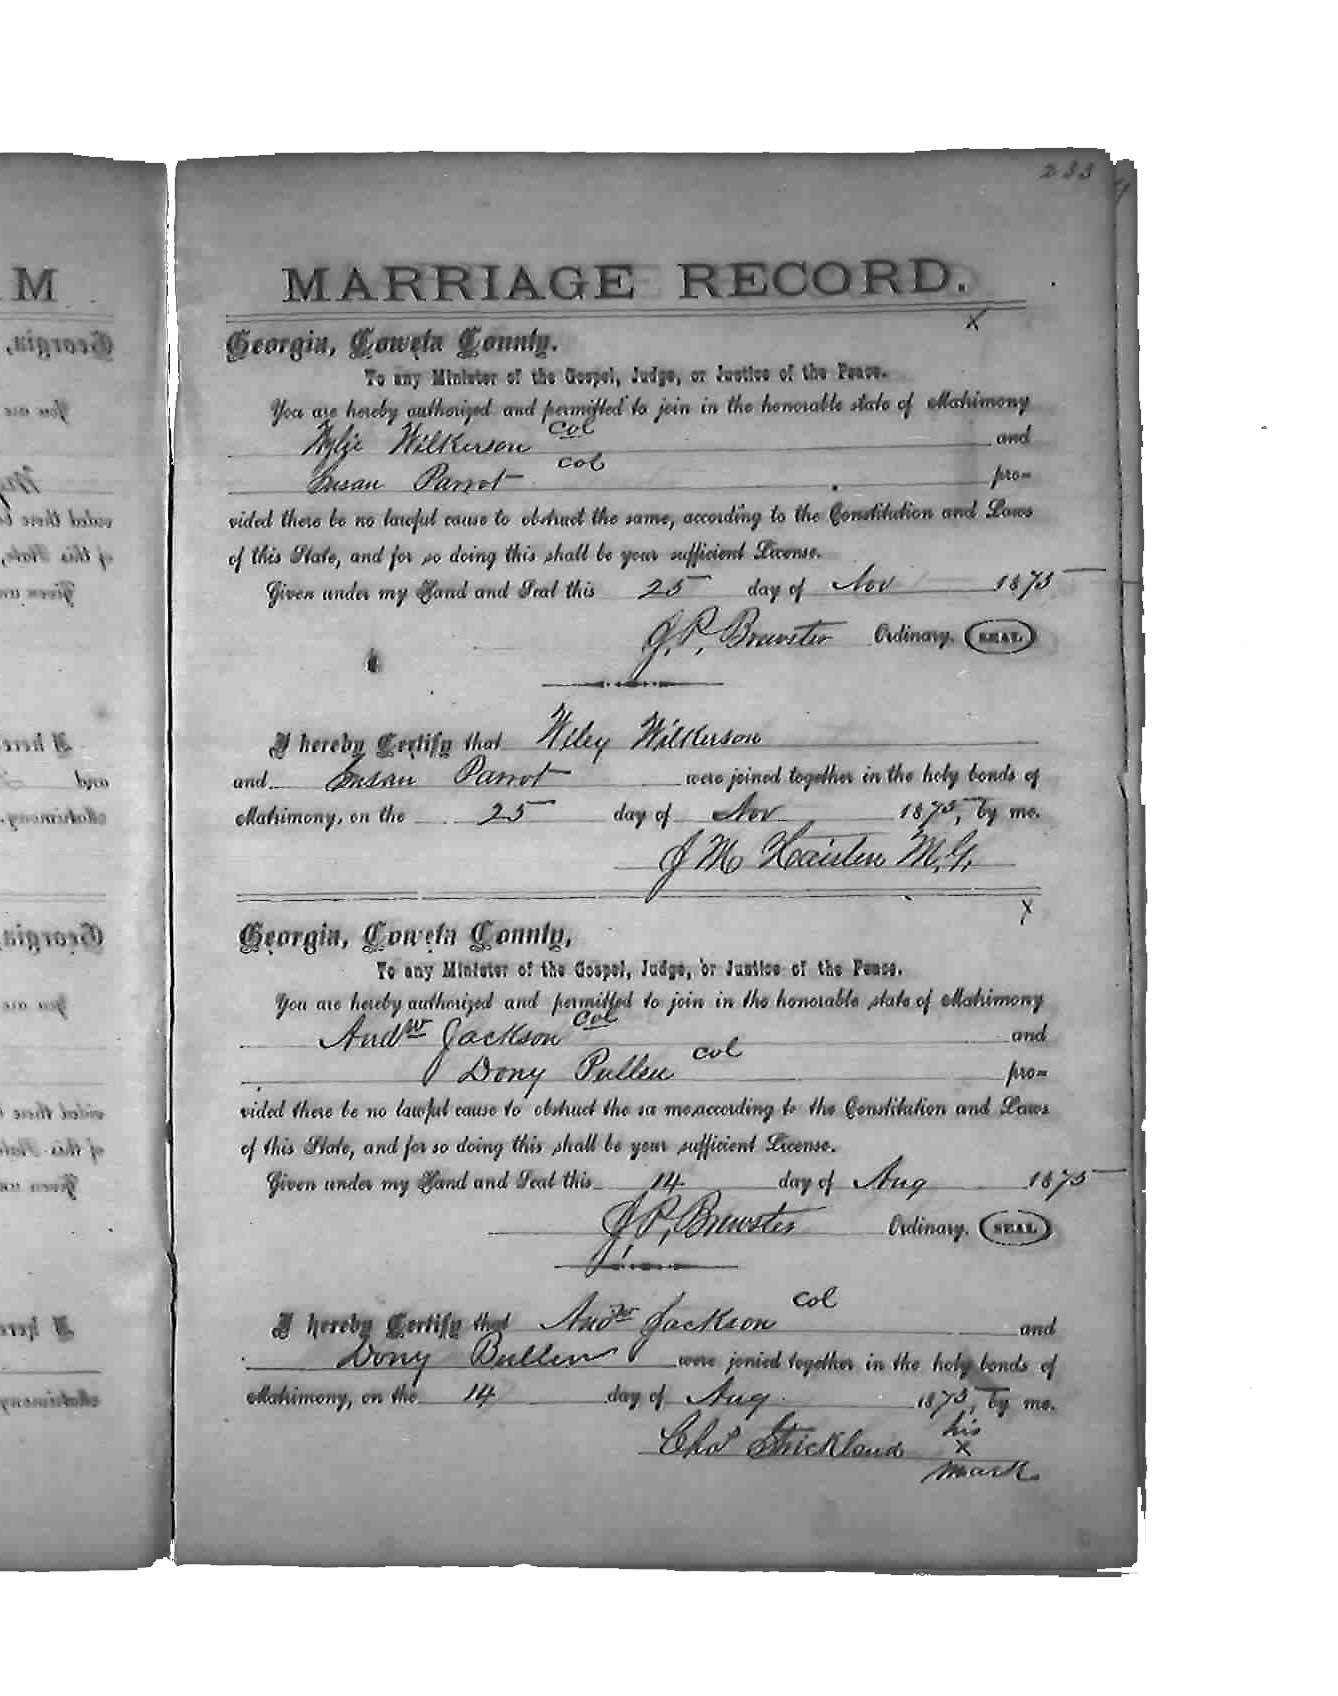 233
MARRIAGE RECORD.
X
Georgia, Coweta County.
To any Minister of the Gospel, Judge, or Justice of the Peace.
You are hereby authorized and permitted to join in the honorable state of Matrimony
Wylie Wilkerson col and
Susan Parrot col pro-
vided there be no lawful cause to obstruct the same, according to the Constitution and Laws
of this State, and for so doing this shall be your sufficient License.
Given under my Hand and Seal this 25 day of Nov 1875
J. P. Brewster Ordinary. SEAL.
I hereby Certify that Wiley Wilkerson
and Susan Parrot were joined together in the holy bonds of
Matrimony, on the 25 day of Nov 1875, by me.
J M Haisten M.G.
X
Georgia, Coweta County,
To any Minister of the Gospel, Judge, or Justice of the Peace.
You are hereby authorized and permitted to join in the honorable state of Matrimony
Andw Jackson col and
Dony Pullen col pro-
vided there be no lawful cause to obstruct the sa me, according to the Constitution and Laws
of this State, and for so doing this shall be your sufficient License.
Given under my Hand and Seal this 14 day of Aug 1875
J. P. Brewster Ordinary. SEAL.
I hereby Certify that Andw Jackson col and
Dony Bullen were jonied together in the holy bonds of
Matrimony, on the 14 day of Aug 1875, by me.
Chas Strickland his
X
mark